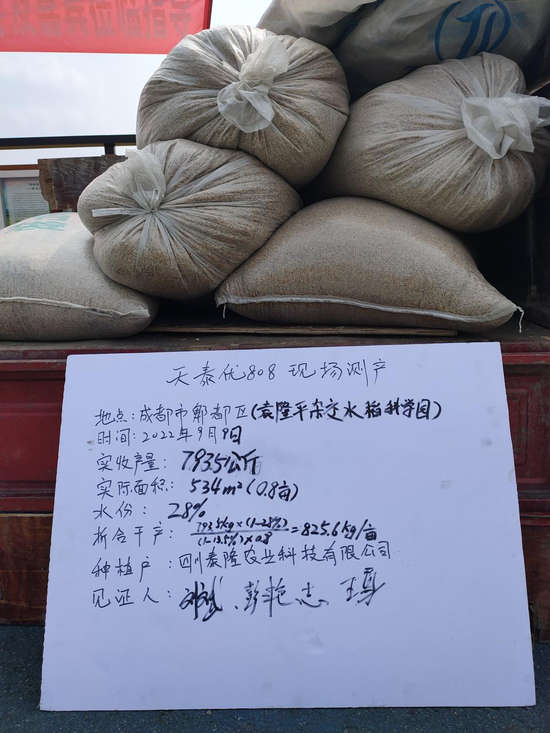 天泰优808 现场测产
地点:成都市郫都区(袁隆平杂交水稻科学园)
时间:2022年9月9日
实收产量:793.5公斤
实际面积:534m²(0.8亩)
水份:28%
折合干产:793.5kg×(1-28%)/(1-13.5%)×0.8=825.6kg/亩
种植户:四川泰隆农业科技有限公司
见证人: